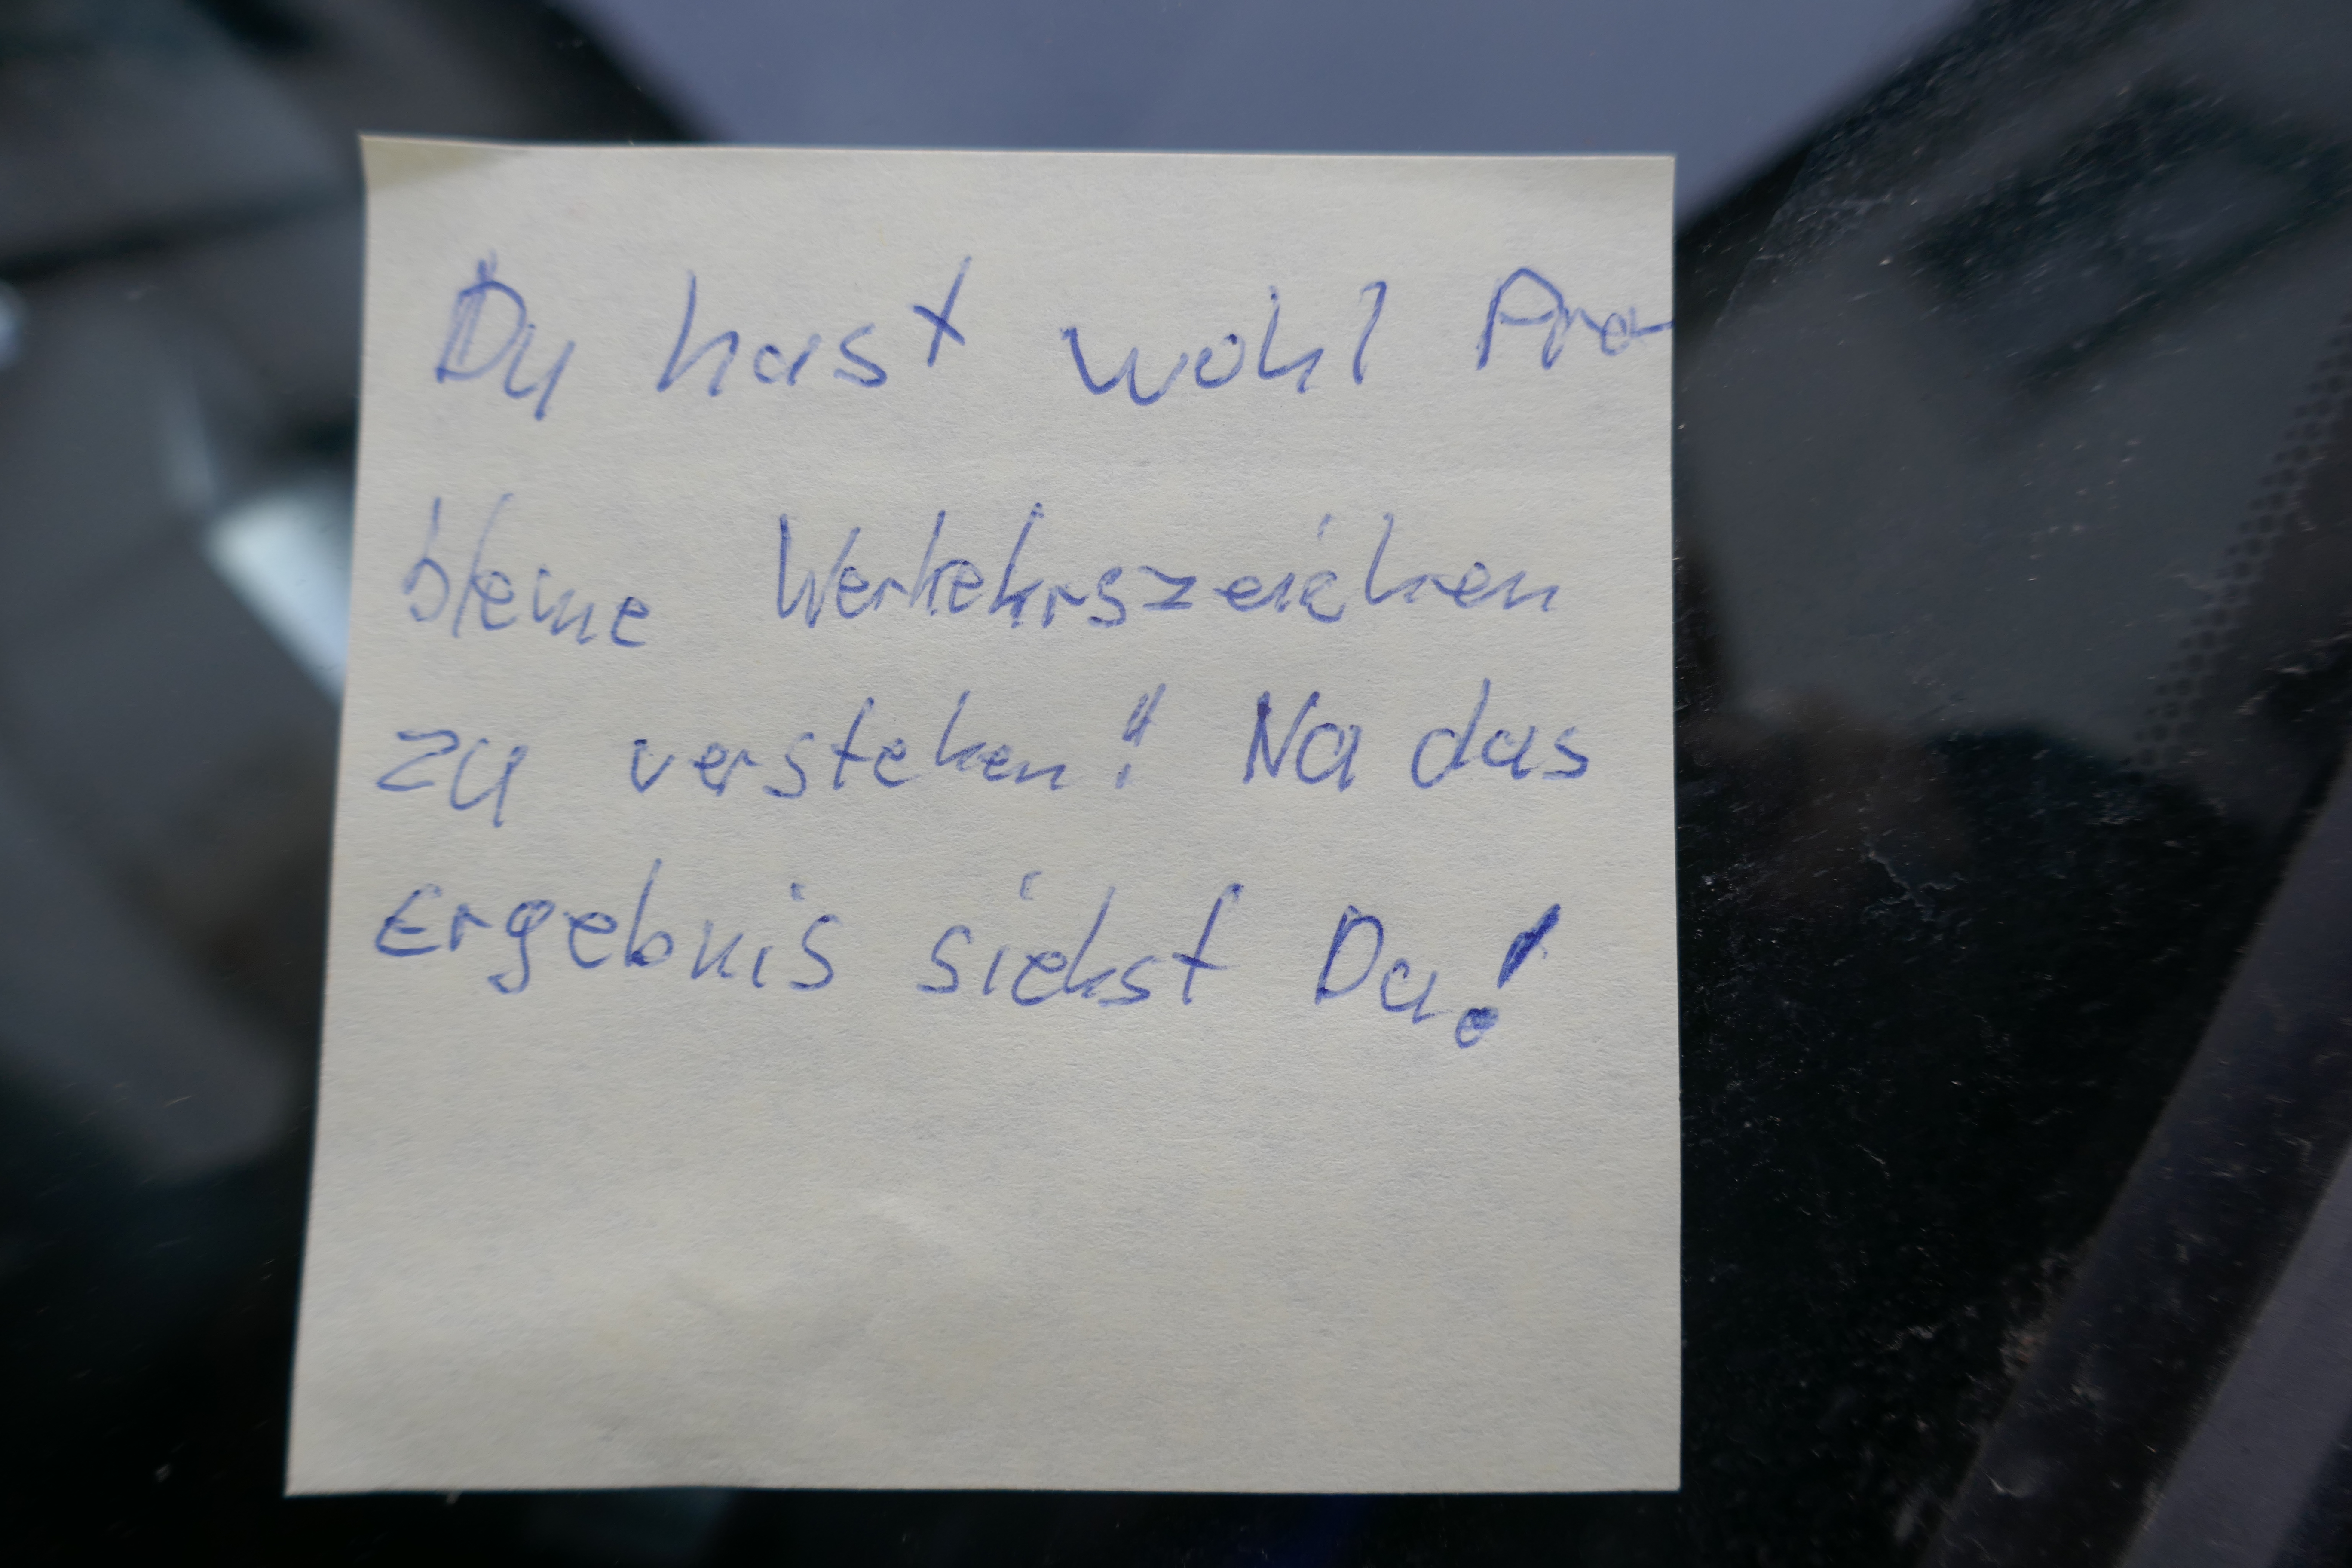 Du hast wohl Pro-
bleme Verkehrszeichen
zu verstehen!! Na das
Ergebnis siehst Du!